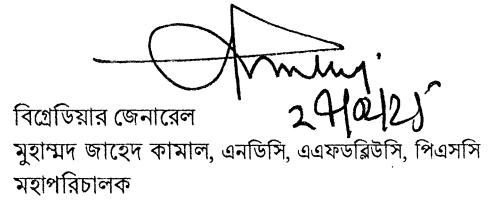 বিগ্রেডিয়ার জেনারেল
মুহাম্মদ জাহেদ কামাল, এনডিসি, এএফডব্লিউসি, পিএসসি
মহাপরিচালক